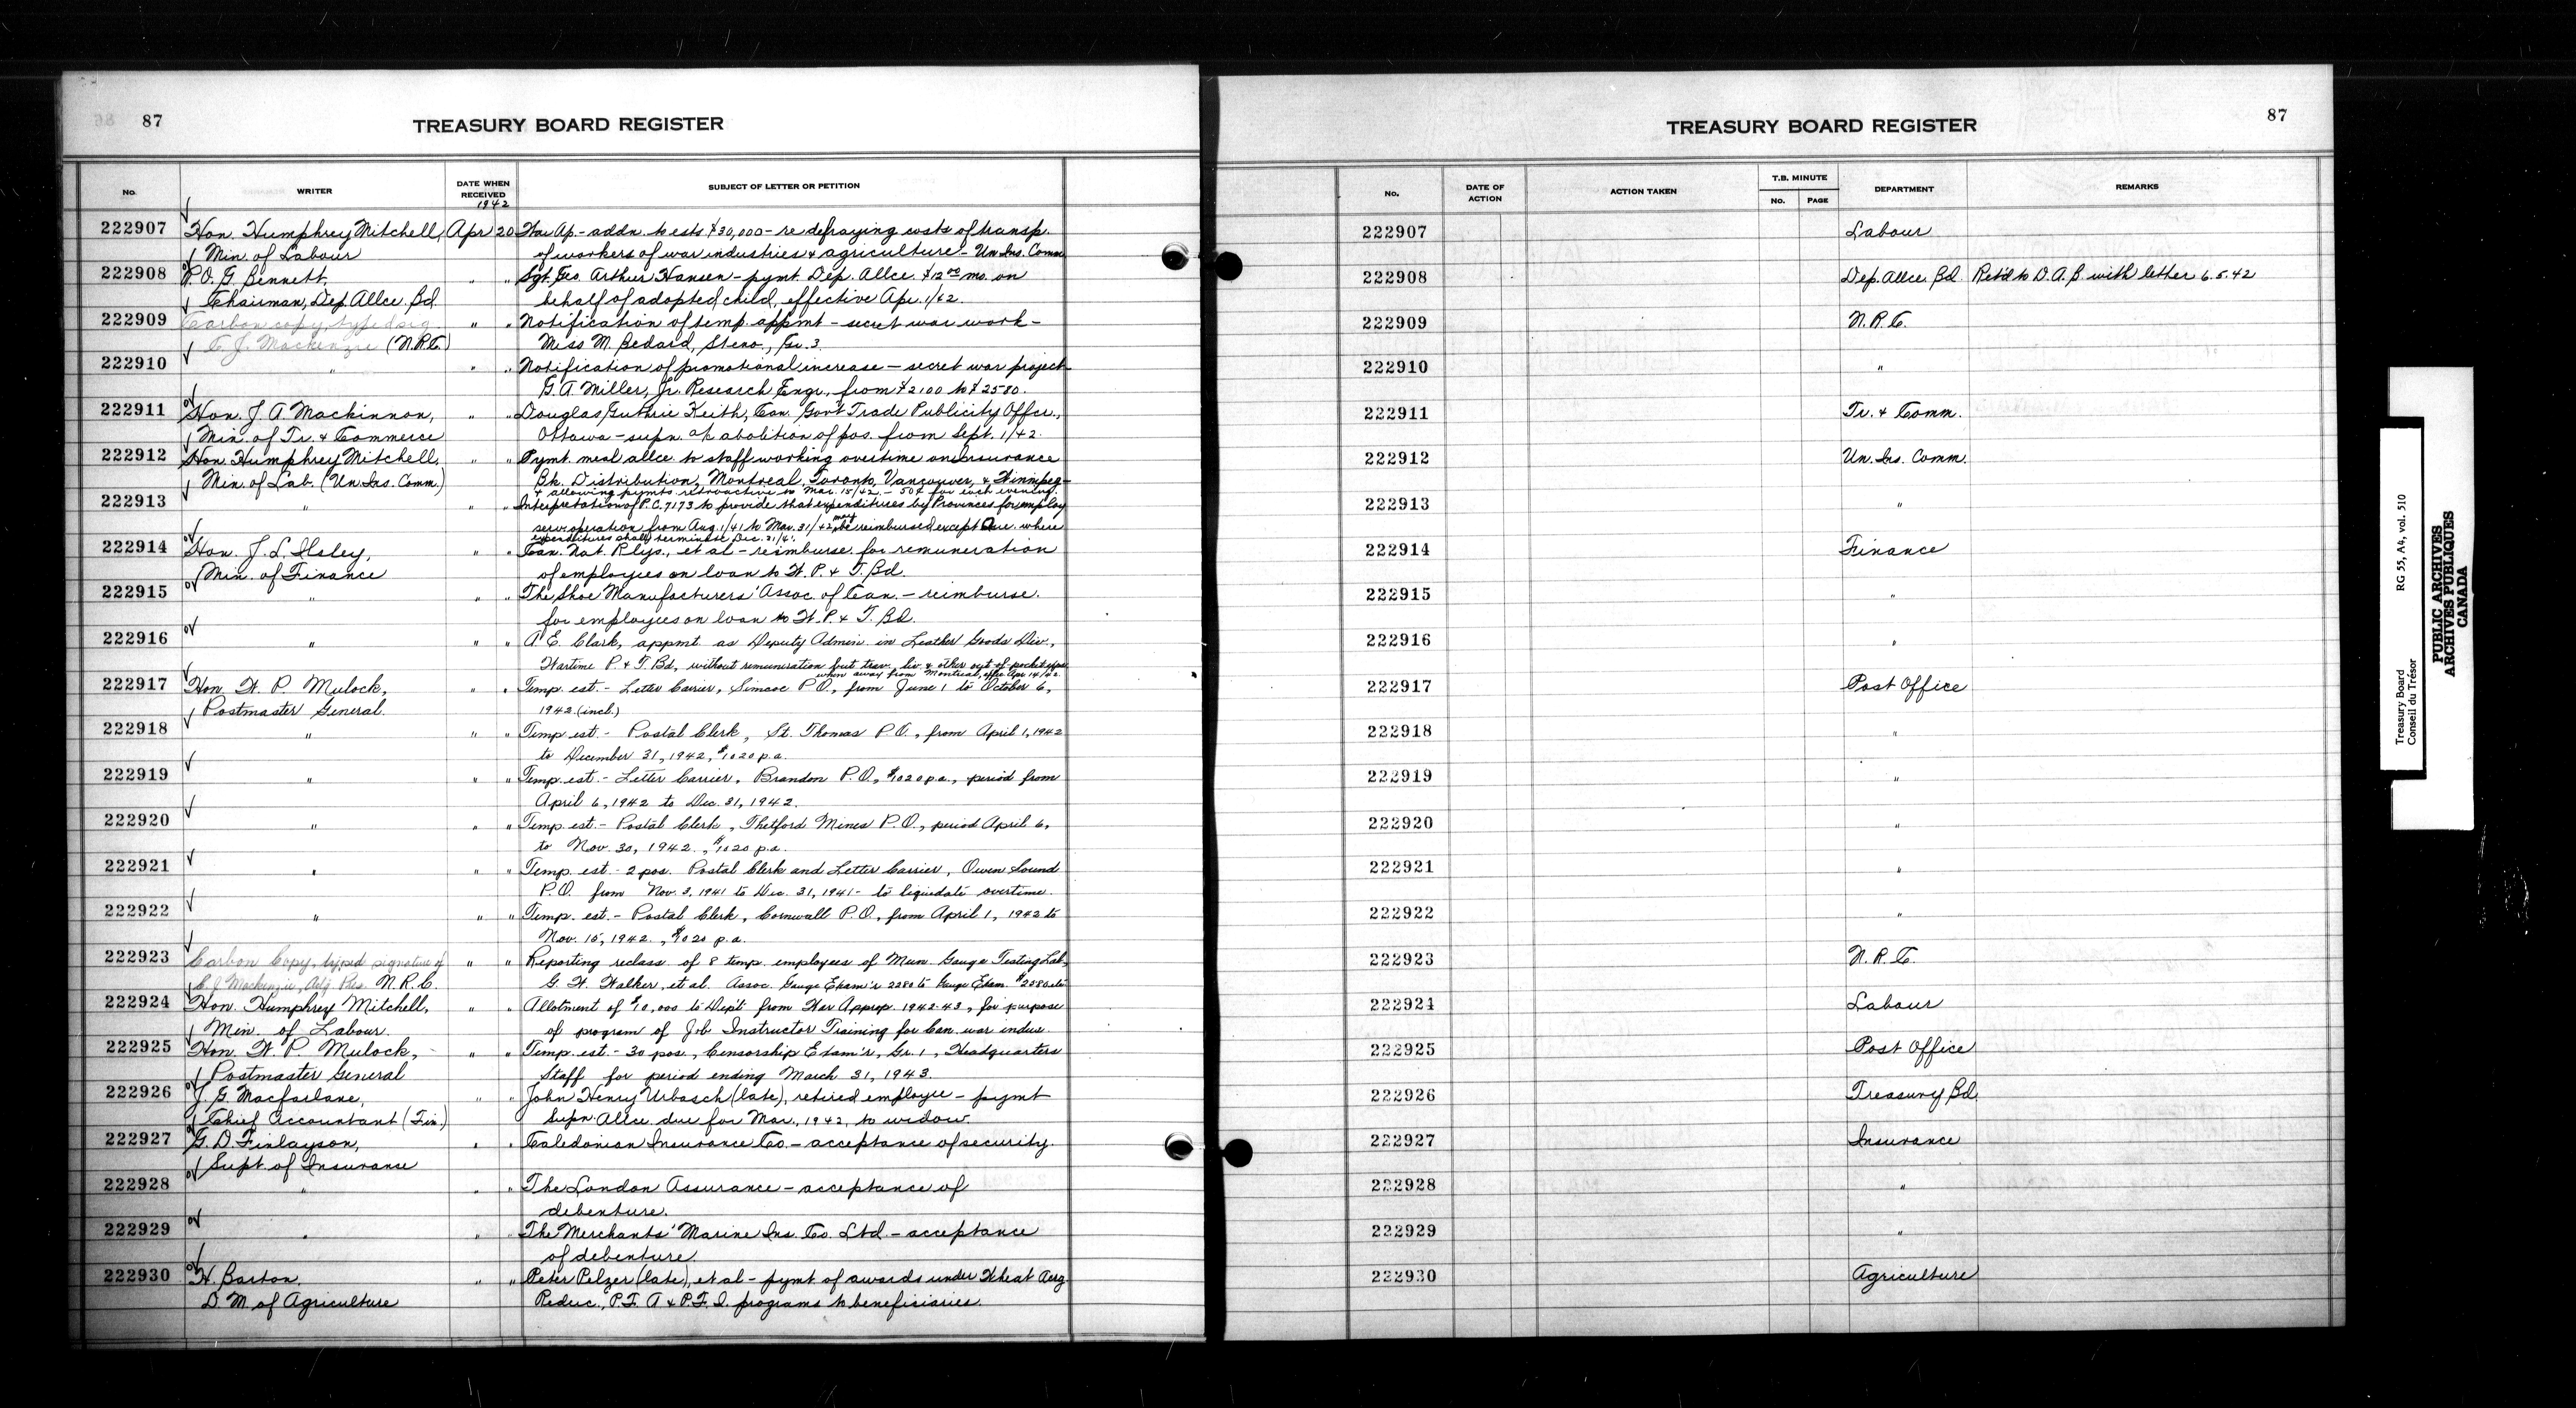 87
TREASURY BOARD REGISTER
No.
WRITER
DATE WHEN RECEIVED
1942
SUBJECT OF LETTER OR PETITION
222907 Hon. Humphrey Mitchell, Apr 20 War Ap. - addn. to ests $30,000 - re defraying costs of transp.
Min. of Labour of workers of war industries & agriculture - Un. Ins. Comm.
222908 P. O. G. Bennett, " " Sgt. Geo. Arthur Hansen - pymt. Dep. Allce. $12.00 mo. on
Chairman, Dep. Allce. Bd. behalf of adopted child, effective Apr. 1/42.
222909 Carbon copy, typed sig. " " Notification of temp. appmt - secret war work -
C. J. Mackenzie (N.R.C.) Miss M. Bedard, Steno., Gr. 3.
222910 " " " Notification of promotional increase - secret war project
G. A. Miller, Jr. Research Engr., from $2100 to $2580.
222911 Hon. J. A. Mackinnon, " " Douglas Guthrie Keith, Can. Gov't Trade Publicity Offcr.,
Min. of Tr. & Commerce Ottawa - supn. a/c abolition of pos. from Sept. 1/42.
222912 Hon. Humphrey Mitchell, " " Pymt. meal allce. to staff working overtime on Insurance
Min. of Lab. (Un. Ins. Comm.) Bk. Distribution, Montreal, Toronto, Vancouver, & Winnipeg
& allowing pymts. retroactive to Mar. 15/42 - 50¢ for each evening.
222913 " " " Interpretation of P.C. 7173 to provide that expenditures by Provinces for employ
serv. operation from Aug. 1/41 to Mar. 31/42 may be reimbursed except Que. where
expenditures shall terminate Dec. 31/41.
222914 Hon. J. L. Ilsley, " " Can. Nat. Rlys., et al - reimburse. for remuneration
Min. of Finance of employees on loan to W. P. & T. Bd.
222915 " " " The Shoe Manufacturers' Assoc. of Can. - reimburse.
for employees on loan to W. P. & T. Bd.
222916 " " " A. E. Clark, appmt. as Deputy Admin. in Leather Goods Div.,
Wartime P. & T. Bd, without remuneration but trav., liv. & other out-of-pocket exps
when away from Montreal, effec. Apr. 14/42.
222917 Hon. W. P. Mulock, " " Temp. est. - Letter Carrier, Simcoe P.O., from June 1 to October 6,
Postmaster General. 1942 (incl.)
222918 " " " Temp est. - Postal Clerk, St. Thomas P.O., from April 1, 1942
to December 31, 1942, $1020 p.a.
222919 " " " Temp. est. - Letter Carrier, Brandon P.O., $1020 p.a., period from
April 6, 1942 to Dec. 31, 1942.
222920 " " " Temp est. - Postal Clerk, Thetford Mines P.O., period April 6,
to Nov. 30, 1942., $1020 p.a.
222921 " " " Temp. est. - 2 pos. Postal Clerk and Letter Carrier, Owen Sound
P.O. from Nov. 3, 1941 to Dec. 31, 1941 - to liquidate overtime.
222922 " " " Temp. est. - Postal Clerk, Cornwall P.O., from April 1, 1942 to
Nov. 15, 1942., $1020 p.a.
222923 Carbon Copy, typed signature of " " Reporting reclass. of 8 temp. employees of Mun. Gauge Testing Lab.
C. J. Mackenzie, Actg. Pres. N.R.C. G. W. Walker, et al. Assoc. Gauge Exam'r 2280 to Gauge Exam. $2580 etc
222924 Hon. Humphrey Mitchell, " " Allotment of $10,000 to Dep't from War Approp. 1942-43, for purpose
Min. of Labour. of program of Job Instructor Training for Can. war indus.
222925 Hon. W. P. Mulock, " " Temp. est. - 30 pos., Censorship Exam'r, Gr. 1, Headquarters
Postmaster General Staff for period ending March 31, 1943.
222926 J. G. Macfarlane, " " John Henry Urbasch (late), retired employee - pymt
Chief Accountant (Fin.) Supn. Allce. due for Mar., 1942, to widow.
222927 G. D. Finlayson, " " Caledonian Insurance Co. - acceptance of security.
Supt. of Insurance
222928 " " " The London Assurance - acceptance of
debenture.
222929 " " " The Merchants' Marine Ins. Co. Ltd. - acceptance
of debenture.
222930 H. Barton, " " Peter Pelzer (late), et al - pymt. of awards under Wheat Acrg
D. M. of Agriculture Reduc., P.F.A. & P.F.I. programs to beneficiaries.
87
TREASURY BOARD REGISTER
No.
DATE OF ACTION
ACTION TAKEN
T.B. MINUTE
No.
PAGE
DEPARTMENT
REMARKS
222907 Labour
222908 Dep. Allce. Bd. Ret'd to D.A.B. with letter 6.5.42
222909 N.R.C.
222910 "
222911 Tr. & Comm.
222912 Un. Ins. Comm.
222913 "
222914 Finance
222915 "
222916 "
222917 Post Office
222918 "
222919 "
222920 "
222921 "
222922 "
222923 N.R.C.
222924 Labour
222925 Post Office
222926 Treasury Bd.
222927 Insurance
222928 "
222929 "
222930 Agriculture
Treasury Board
Conseil du Trésor
RG 55, A4, vol. 510
PUBLIC ARCHIVES
ARCHIVES PUBLIQUES
CANADA